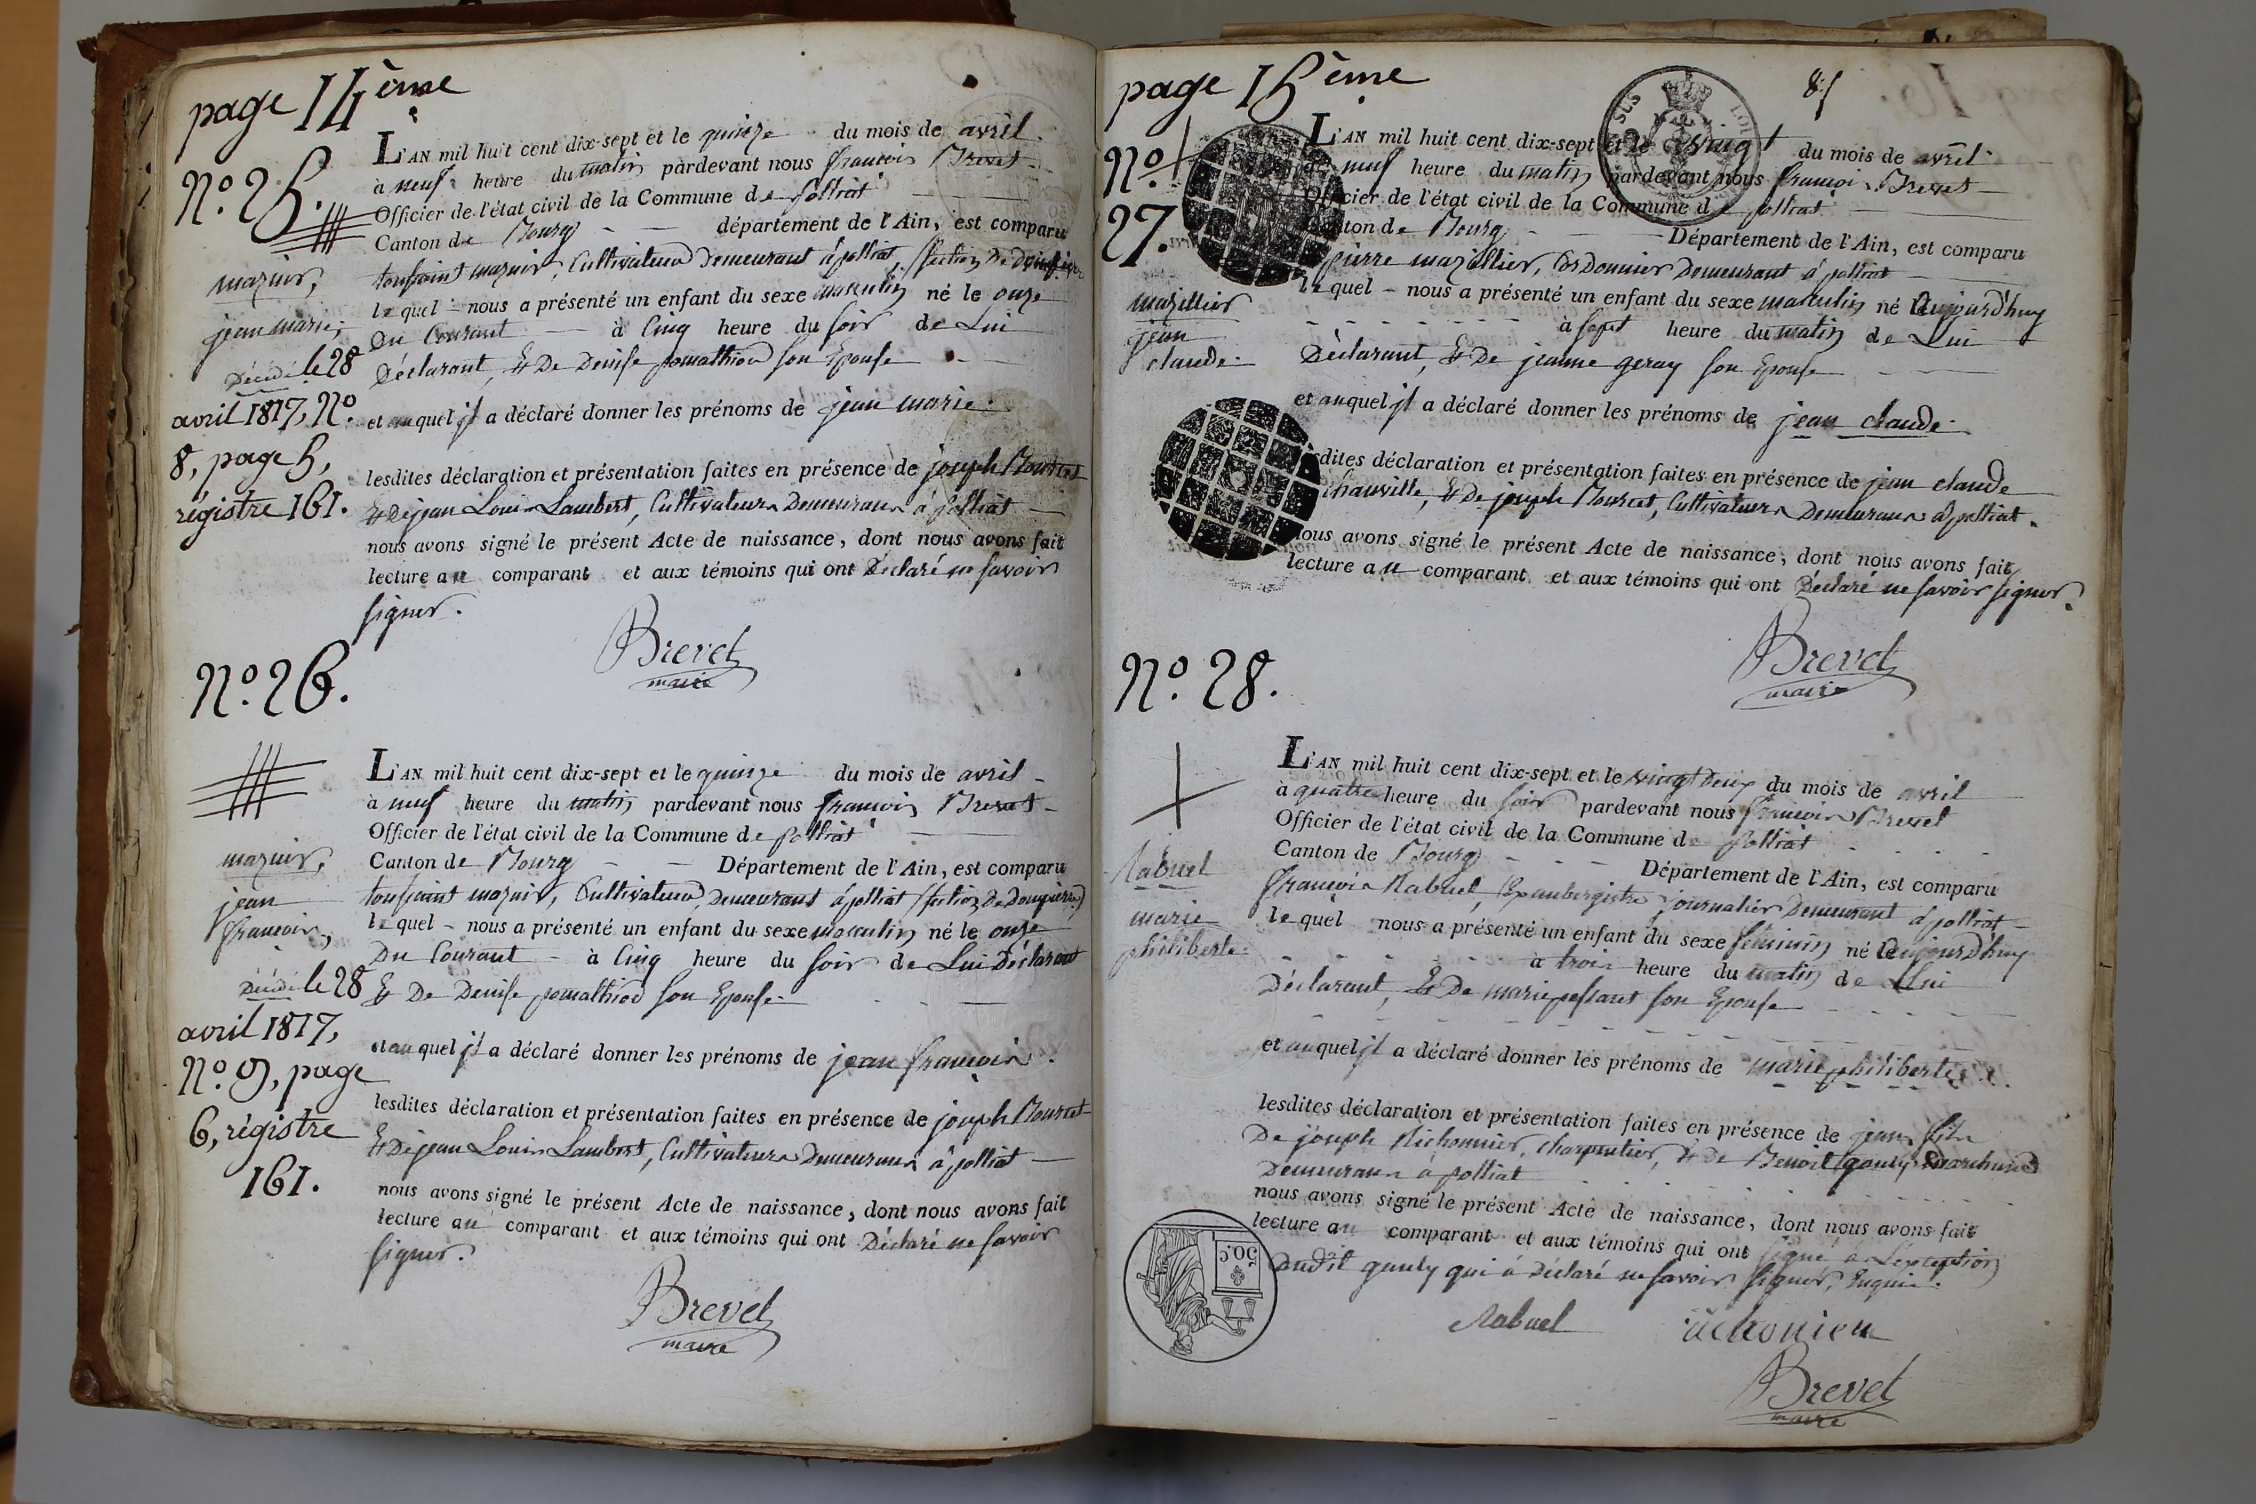 page 14ème
N.o 25.
mazuir,
jean marie,
Décédé le 28
avril 1817, N.o
8, page 5,
régistre 161.
L'AN mil huit cent dix-sept et le quinze du mois de avril
à neuf heure du matin pardevant nous françois Brevet
Officier de l'état civil de la Commune de polliat
Canton de Bourg département de l'Ain, est comparu
toussaint mazuir, Cultivateur Demeurant à polliat, Section De
lequel nous a présenté un enfant du sexe masculin né le onze
Du Courant à Cinq heure du soir de Lui
Déclarant, & De Denise pomathiod son Epouse
et auquel il a déclaré donner les prénoms de jean marie.
lesdites déclaration et présentation faites en présence de joseph Bourcet
& De jean Louis Lambert, Cultivateurs Demeurans à polliat
nous avons signé le présent Acte de naissance, dont nous avons fait
lecture au comparant et aux témoins qui ont Déclaré ne savoir
signer.
Brevet
maire
N.o 26.
mazuir,
jean
françois,
Décédé le 28
avril 1817,
N.o 9, page
6, régistre
161.
L'AN mil huit cent dix-sept et le quinze du mois de avril
à neuf heure du matin pardevant nous françois Brevet
Officier de l'état civil de la Commune de polliat
Canton de Bourg Département de l'Ain, est comparu
toussaint mazuir, Cultivateur, Demeurant à polliat (Section De Dompierre)
lequel nous a présenté un enfant du sexe masculin né le onze
Du Courant à Cinq heure du soir de Lui Déclarant
& De Denise pomathiod son Epouse
et auquel il a déclaré donner les prénoms de jean françois.
lesdites déclaration et présentation faites en présence de joseph Bourcet
& De jean Louis Lambert, Cultivateurs Demeurans à polliat
nous avons signé le présent Acte de naissance, dont nous avons fait
lecture au comparant et aux témoins qui ont Déclaré ne savoir
signer.
Brevet
maire
page 15ème
N.o
27.
mazillier
jean
claude
L'AN mil huit cent dix-sept et le vingt du mois de avril
neuf heure du matin pardevant nous françois Brevet
Officier de l'état civil de la Commune de polliat
Canton de Bourg Département de l'Ain, est comparu
pierre mazillier, Cordonnier Demeurant à polliat
lequel nous a présenté un enfant du sexe masculin né aujourd'huy
à sept heure du matin de Lui
Déclarant, & De jeanne geray son Epouse
et auquel il a déclaré donner les prénoms de jean claude.
lesdites déclaration et présentation faites en présence de jean claude
& De joseph Bourcet, Cultivateurs Demeurans à polliat.
nous avons signé le présent Acte de naissance, dont nous avons fait
lecture au comparant et aux témoins qui ont Déclaré ne savoir signer.
Brevet
maire
N.o 28.
Rabuel
marie
philiberte
L'AN mil huit cent dix-sept et le vingt Deux du mois de avril
à quatre heure du soir pardevant nous françois Brevet
Officier de l'état civil de la Commune de polliat
Canton de Bourg Département de l'Ain, est comparu
françois Rabuel, Exaubergiste journalier Demeurant à polliat
lequel nous a présenté un enfant du sexe féminin né aujourd'huy
à trois heure du matin de Lui
Déclarant, & De marie son Epouse
et auquel il a déclaré donner les prénoms de marie philiberte
lesdites déclaration et présentation faites en présence de jean fils
De joseph Michonnier, charpentier, & De Benoit gauly marchand
Demeurans à polliat
nous avons signé le présent Acte de naissance, dont nous avons fait
lecture au comparant et aux témoins qui ont signé à L'exception
Dudit gauly qui a Déclaré ne savoir signer, Enquis.
Rabuel
Brevet
maire
50.c